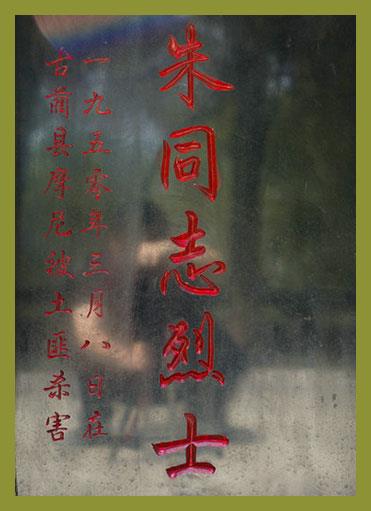 朱同志烈士
一九五零年三月八日在
古蔺县摩尼被土匪杀害